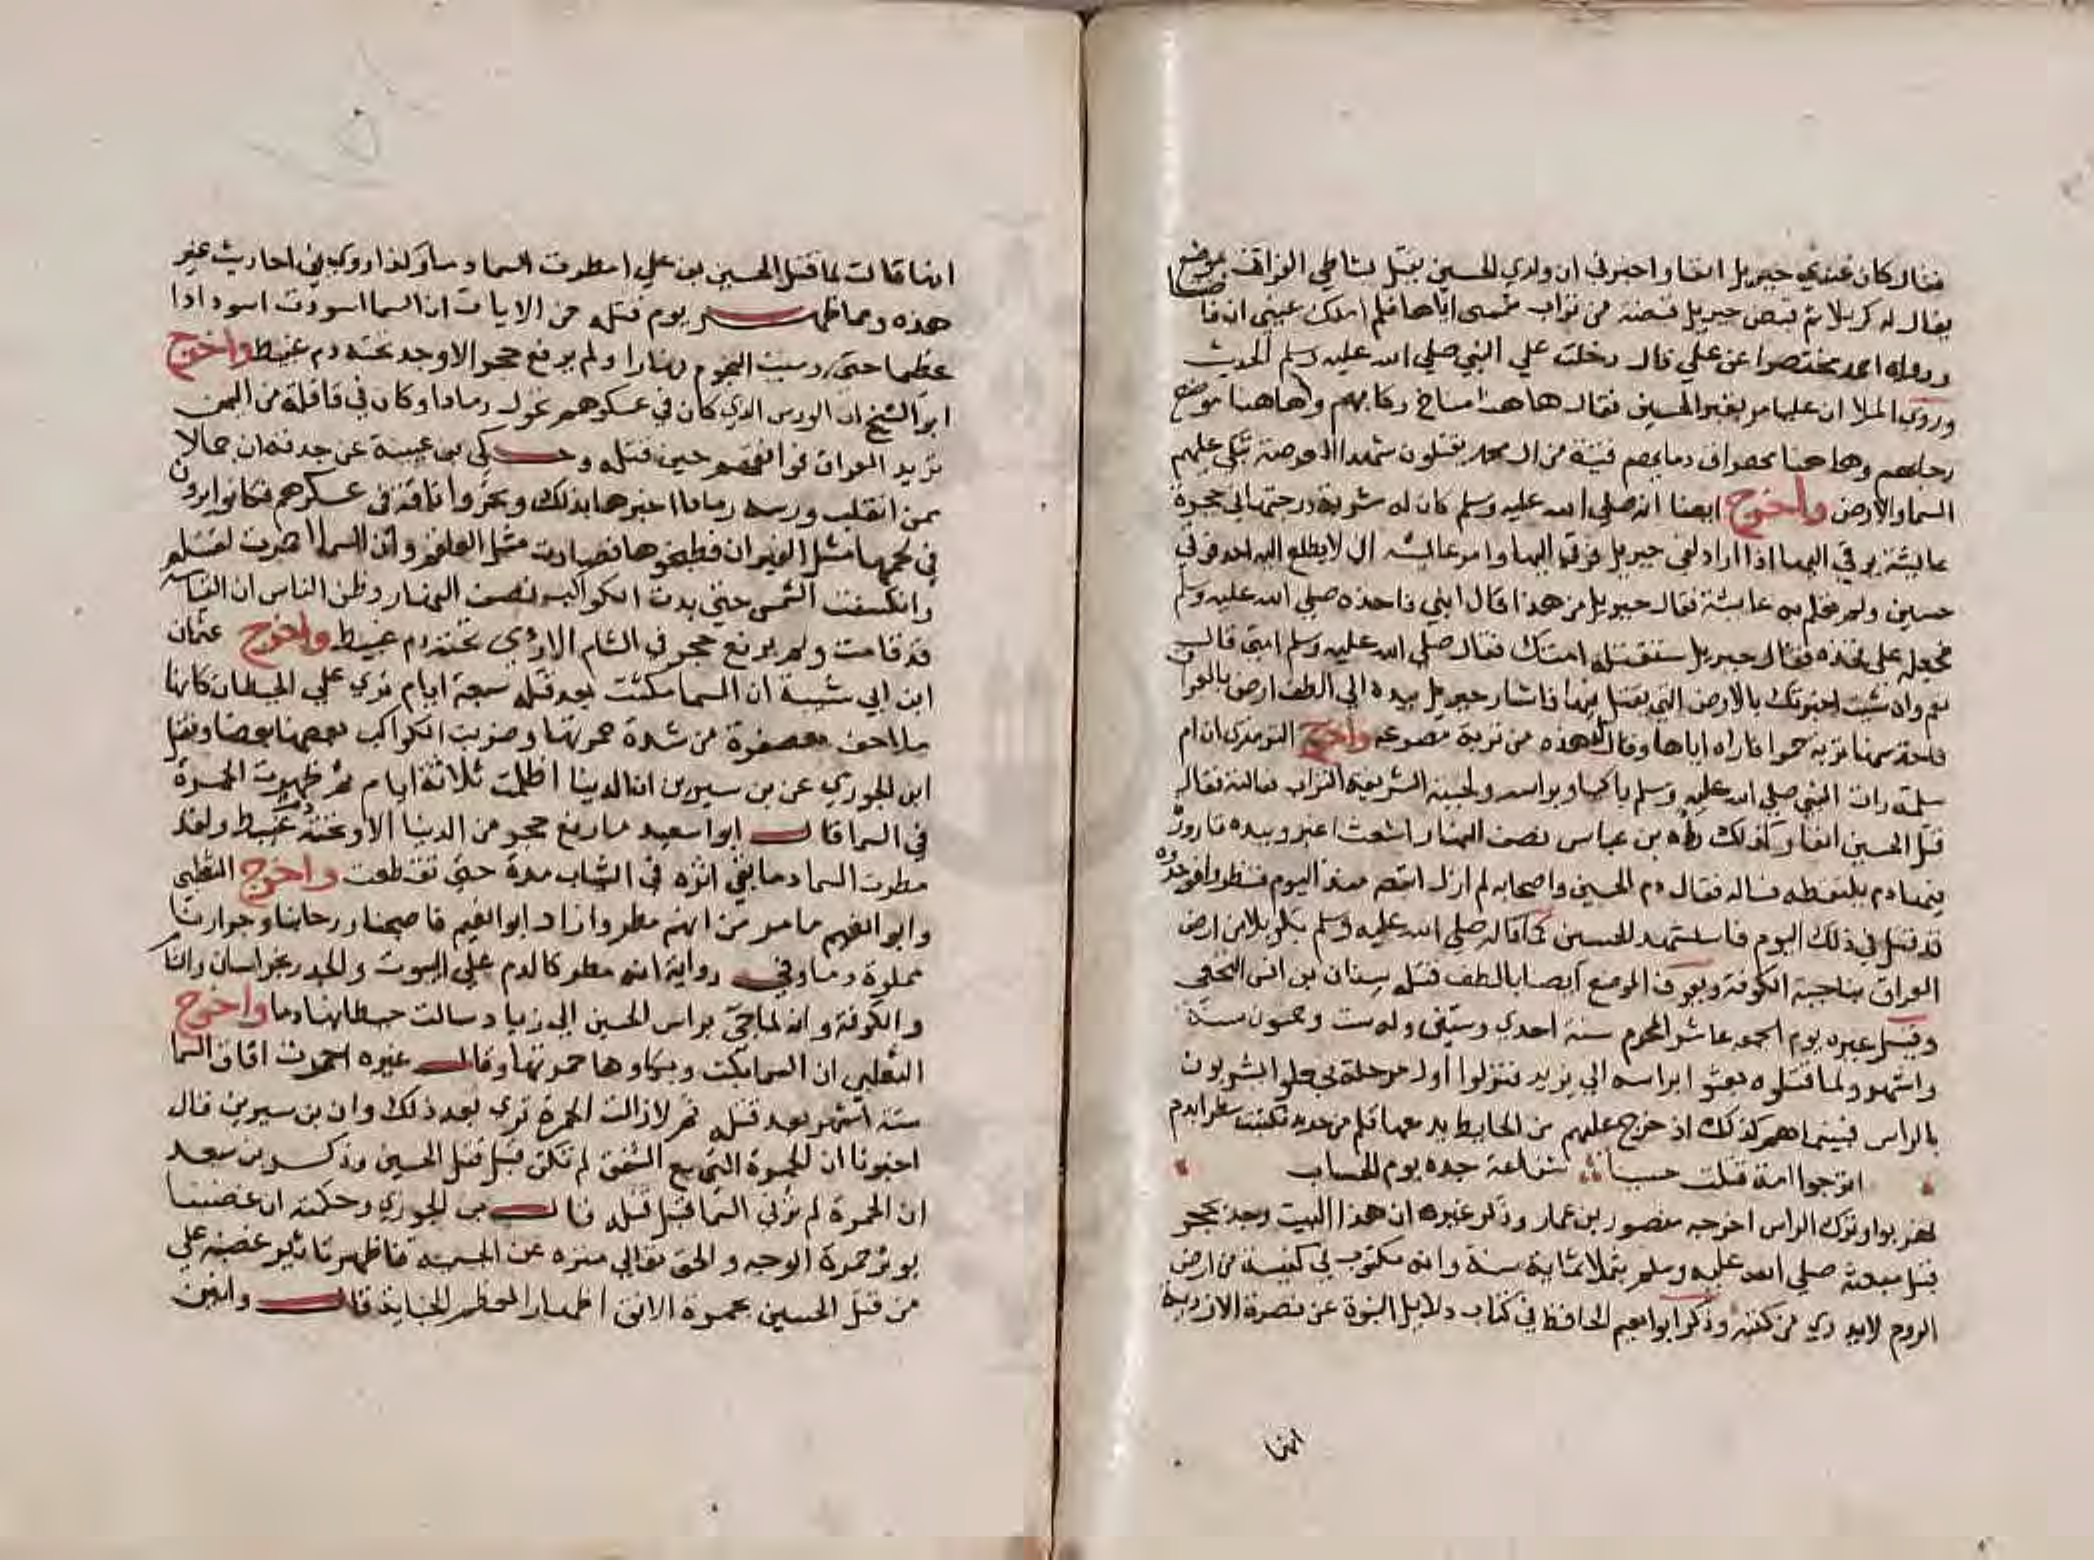 فقال كان عندي جبريل انفا واخبرني ان ولدي الحسين يقتل بشاطي الفرات بموضع
يقال له كربلا ثم قبض جبريل قبضة من تراب فشمني اياها فلم املك عيني ان فاضتا
ورواه احمد مختصرا عن علي قال دخلت علي النبي صلي الله عليه وسلم الحديث
وروي الملا ان عليا مر بقبر الحسين فقال هاهنا مناخ ركابهم وهاهنا موضع
رحالهم وهاهنا مهراق دمايهم فتية من ال محمد يقتلون بهذه العرصة تبكي عليهم
السما والارض واخرج ايضا انه صلي الله عليه وسلم كان له مشربة درجتها في حجرة
عايشة يرقي اليها اذا اراد لقي جبريل فرقي اليها وامر عايشه ان لا يطلع اليه احد فرقي
حسين ولم تعلم به عايشة فقال جبريل من هذا قال ابني فاخذه صلي الله عليه وسلم
فجعله علي فخذه فقال جبريل ستقتله امتك فقال صلي الله عليه وسلم امتي قال
نعم وان شئت اخبرتك بالارض التي يقتل فيها فاشار جبريل بيده الي الطف ارض بالعراق
فاخذ منها تربة حمرا فاراه اياها وقال هذه من تربة مصرعه واخرج الترمذي ان ام
سلمة رات النبي صلي الله عليه وسلم باكيا وبراسه ولحيته الشريفة التراب فسالته فقال
قتل الحسين انفا وكذلك راه بن عباس نصف النهار اشعث اغبر وبيده قارورة
فيها دم يلتقطه فساله فقال دم الحسين واصحابه لم ازل اتبعه منذ اليوم فنظروا فوجدوه
قد قتل في ذلك اليوم فاستشهد الحسين كما قاله صلي الله عليه وسلم بكربلا من ارض
العراق بناحية الكوفة ويعرف الموضع ايضا بالطف قتله سنان بن انس النخعي
وقيل غيره يوم الجمعه عاشر المحرم سنة احدي وستين وله ست وخمسون سنة
واشهر ولما قتلوه بعثوا براسه الي يزيد فنزلوا اول مرحلة فجعلوا يشربون
بالراس فبينما هم كذلك اذ خرج عليهم من الحايط يد معها قلم من حديد فكتبت سطرا بدم
اترجوا امة قتلت حسينا شفاعة جده يوم الحساب
فهربوا وتركوا الراس اخرجه منصور بن عمار وذكر غيره ان هذا البيت وجد بحجر
قبل مبعثه صلي الله عليه وسلم بثلاثماية سنة وانه مكتوب في كنيسة من ارض
الروم لا يدري من كتبه وذكر ابو نعيم الحافظ في كتاب دلايل النبوة عن نصرة الازدية
انها
انها قالت لما قتل الحسين بن علي امطرت السما دما وكذا روي في احاديث غير
هذه ومما ظهر يوم قتله من الايات ان السما اسودت اسودادا
عظيما حتي رميت النجوم نهارا ولم يرفع حجر الا وجد تحته دم عبيط واخرج
ابو الشيخ ان الورس الذي كان في عسكرهم تحول رمادا وكان في قافلة من اليمن
تريد العراق فوافقهم حين قتله وحكي بن عيينة عن جدته ان جمالا
ممن انقلب ورسه رمادا اخبرها بذلك ونحروا ناقة في عسكرهم فكانوا يرون
في لحمها مثل الفيران فطبخوها فصارت مثل العلقم وان السما احمرت لقتله
وانكسفت الشمس حتي بدت الكواكب نصف النهار وظن الناس ان القيامه
قد قامت ولم يرفع حجر في الشام الا روي تحته دم عبيط واخرج عثمان
ابن ابي شيبة ان السما مكثت بعد قتله سبعة ايام تري علي الحيطان كانها
ملاحف معصفرة من شدة حمرتها وضربت الكواكب بعضها بعضا ونقل
ابن الجوزي عن بن سيرين ان الدنيا اظلمت ثلاثة ايام ثم ظهرت الحمرة
في السما قال ابو سعيد ما رفع حجر من الدنيا الا وتحته دم عبيط ولقد
مطرت السما دما بقي اثره في الثياب مدة حتي تقطعت واخرج الثعلبي
وابو نعيم ما مر من انهم مطروا زاد ابو نعيم فاصبحنا ورحابنا وجرارنا
مملوة دما وفي رواية انه مطر كالدم علي البيوت والجدر بخراسان والشام
والكوفة وانه لما جي براس الحسين الي زياد سالت حيطانها دما واخرج
الثعلبي ان السما بكت وبكاوها حمرتها وقال غيره احمرت افاق السما
ستة اشهر بعد قتله ثم لازالت الحمرة تري بعد ذلك وان بن سيرين قال
اخبرونا ان الحمرة التي مع الشفق لم تكن قبل قتل الحسين وذكر بن سعد
ان الحمرة لم تر في السما قبل قتله قال بن الجوزي وحكمته ان غضبنا
يوثر حمرة الوجه والحق تعالي منزه عن الجسمية فاظهر تاثير غضبه علي
من قتل الحسين بحمرة الافق اظهارا لعظم الجناية قال وانين